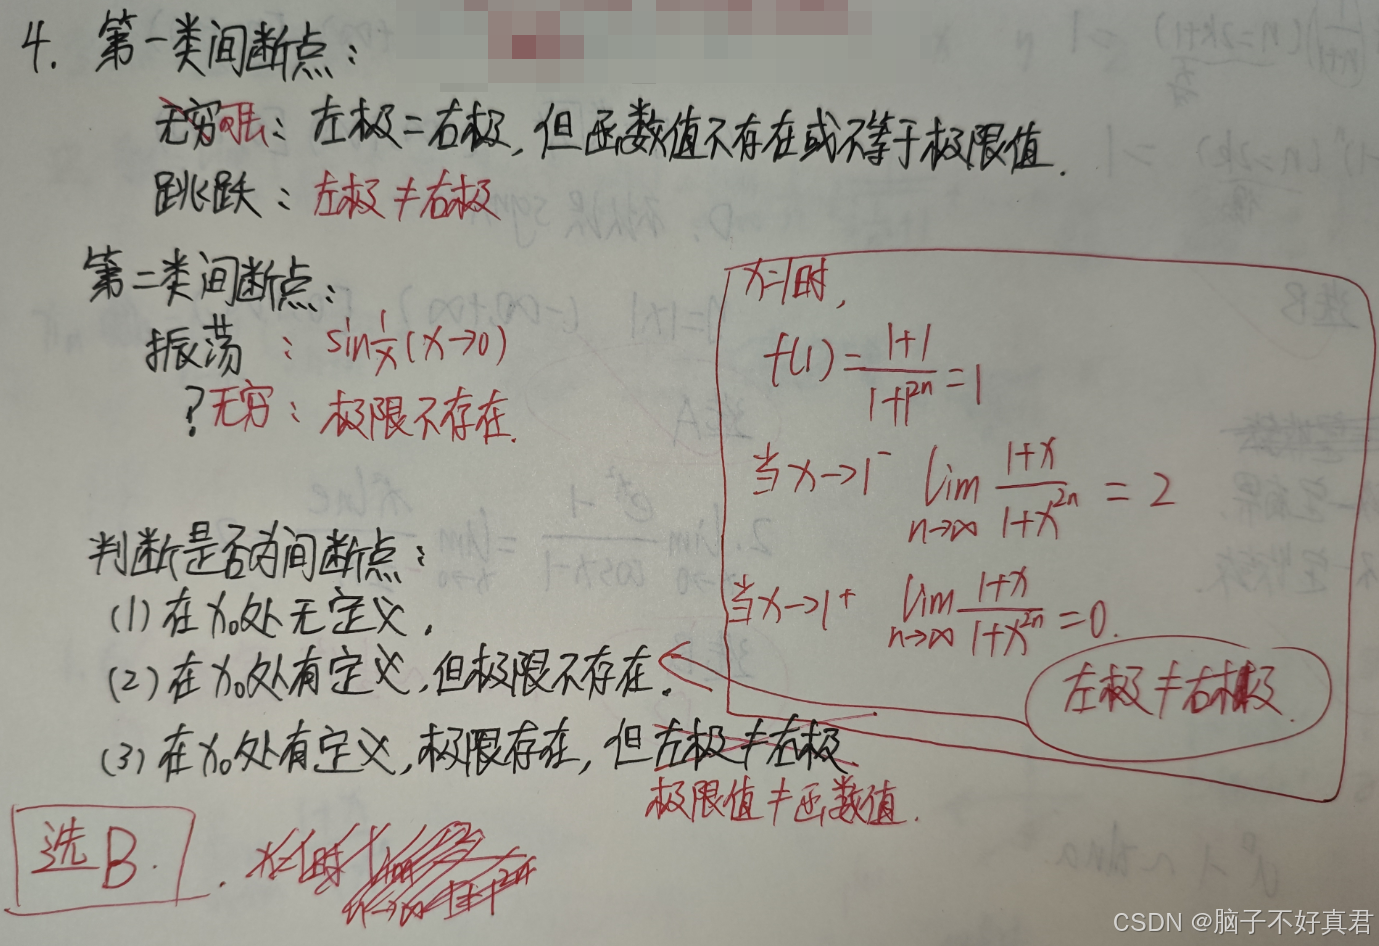 4. 第一类间断点：
无穷可去：左极=右极，但函数值不存在或不等于极限值.
跳跃：左极≠右极
第二类间断点：
振荡：sin 1/x (x→0)
?无穷：极限不存在.
判断是否为间断点：
(1) 在x₀处无定义.
(2) 在x₀处有定义,但极限不存在.
(3) 在x₀处有定义,极限存在,但左极≠右极
极限值≠函数值.
选B.
x=1时,
f(1)=(1+1)/(1+1²ⁿ)=1
当x→1⁻ lim n→∞ (1+x)/(1+x²ⁿ) = 2
当x→1⁺ lim n→∞ (1+x)/(1+x²ⁿ) =0.
左极≠右极.
CSDN @脑子不好真君